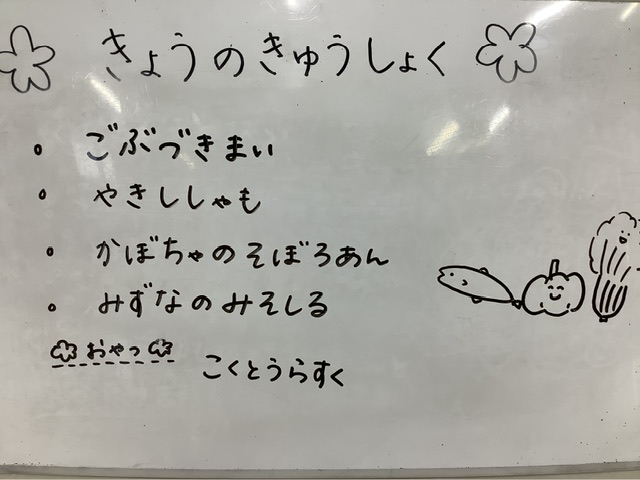 きょうのきゅうしょく
・ごぶづきまい
・やきししゃも
・かぼちゃのそぼろあん
・みずなのみそしる
おやつ こくとうらすく